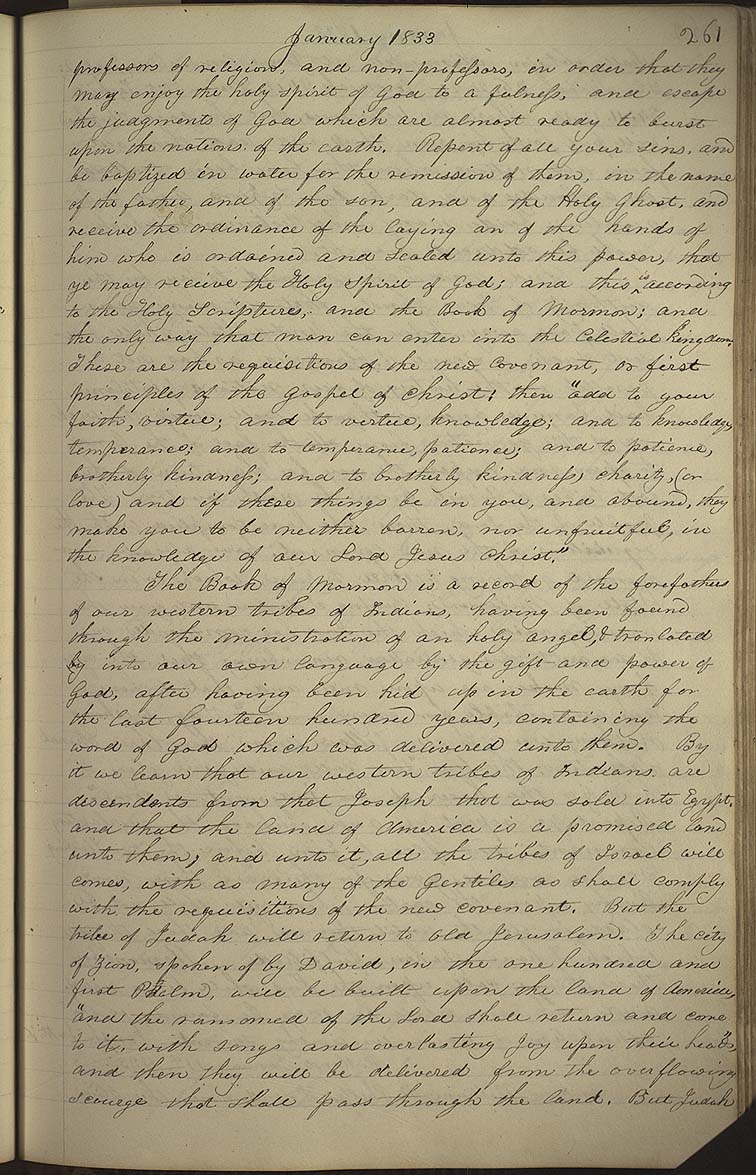 January 1833
261
professors of religion, and non-professors, in order that they
may enjoy the holy spirit of God to a fulness, and escape
the judgments of God which are almost ready to burst
upon the nations of the earth. Repent of all your sins, and
be baptized in water for the remission of them, in the name
of the father, and of the son, and of the Holy Ghost, and
receive the ordinance of the laying an of the hands of
him who is ordained and sealed unto this power, that
ye may receive the Holy Spirit of God; and this is according
to the Holy Scriptures, and the Book of Mormon; and
the only way that man can enter into the Celestial kingdom.
These are the requisitions of the new Covenant, or first
principles of the Gospel of Christ; then "add to your
faith, virtue; and to virtue, knowledge; and to knowledge,
temperance; and to temperance, patience; and to patience,
brotherly kindness; and to brotherly kindness, charity, (or
love) and if these things be in you, and abound, they
make you to be neither barren, nor unfruitful, in
the knowledge of our Lord Jesus Christ."
The Book of Mormon is a record of the forefathers
of our western tribes of Indians, having been found
through the ministration of an holy angel, & translated
by into our own language by the gift and power of
God, after having been hid up in the earth for
the last fourteen hundred years, containing the
word of God which was delivered unto them. By
it we learn that our western tribes of Indians are
descendents from that Joseph that was sold into Egypt,
and that the land of America is a promised land
unto them, and unto it, all the tribes of Israel will
come, with as many of the Gentiles as shall comply
with the requisitions of the new covenant. But the
tribe of Judah will return to old Jerusalem. The city
of Zion, spoken of by David, in the one hundred and
first Psalm, will be built upon the land of America,
"and the ransomed of the Lord shall return and come
to it, with songs and everlasting joy upon their heads,"
and then they will be delivered from the overflowing
scourge that shall pass through the land. But Judah